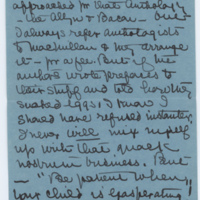 approached for that Anthology
- the Allyn & Bacon - but
I always refer anthologists
to Macmillan & they arrange
it - for a fee. But if the
authors wrote prefaces to
their stuff and told how they
sucked eggs, I know I
should have refused instanter.
I never will mix myself
up with that quack
nostrum business. But
- "Be patient when
your child is exasperating